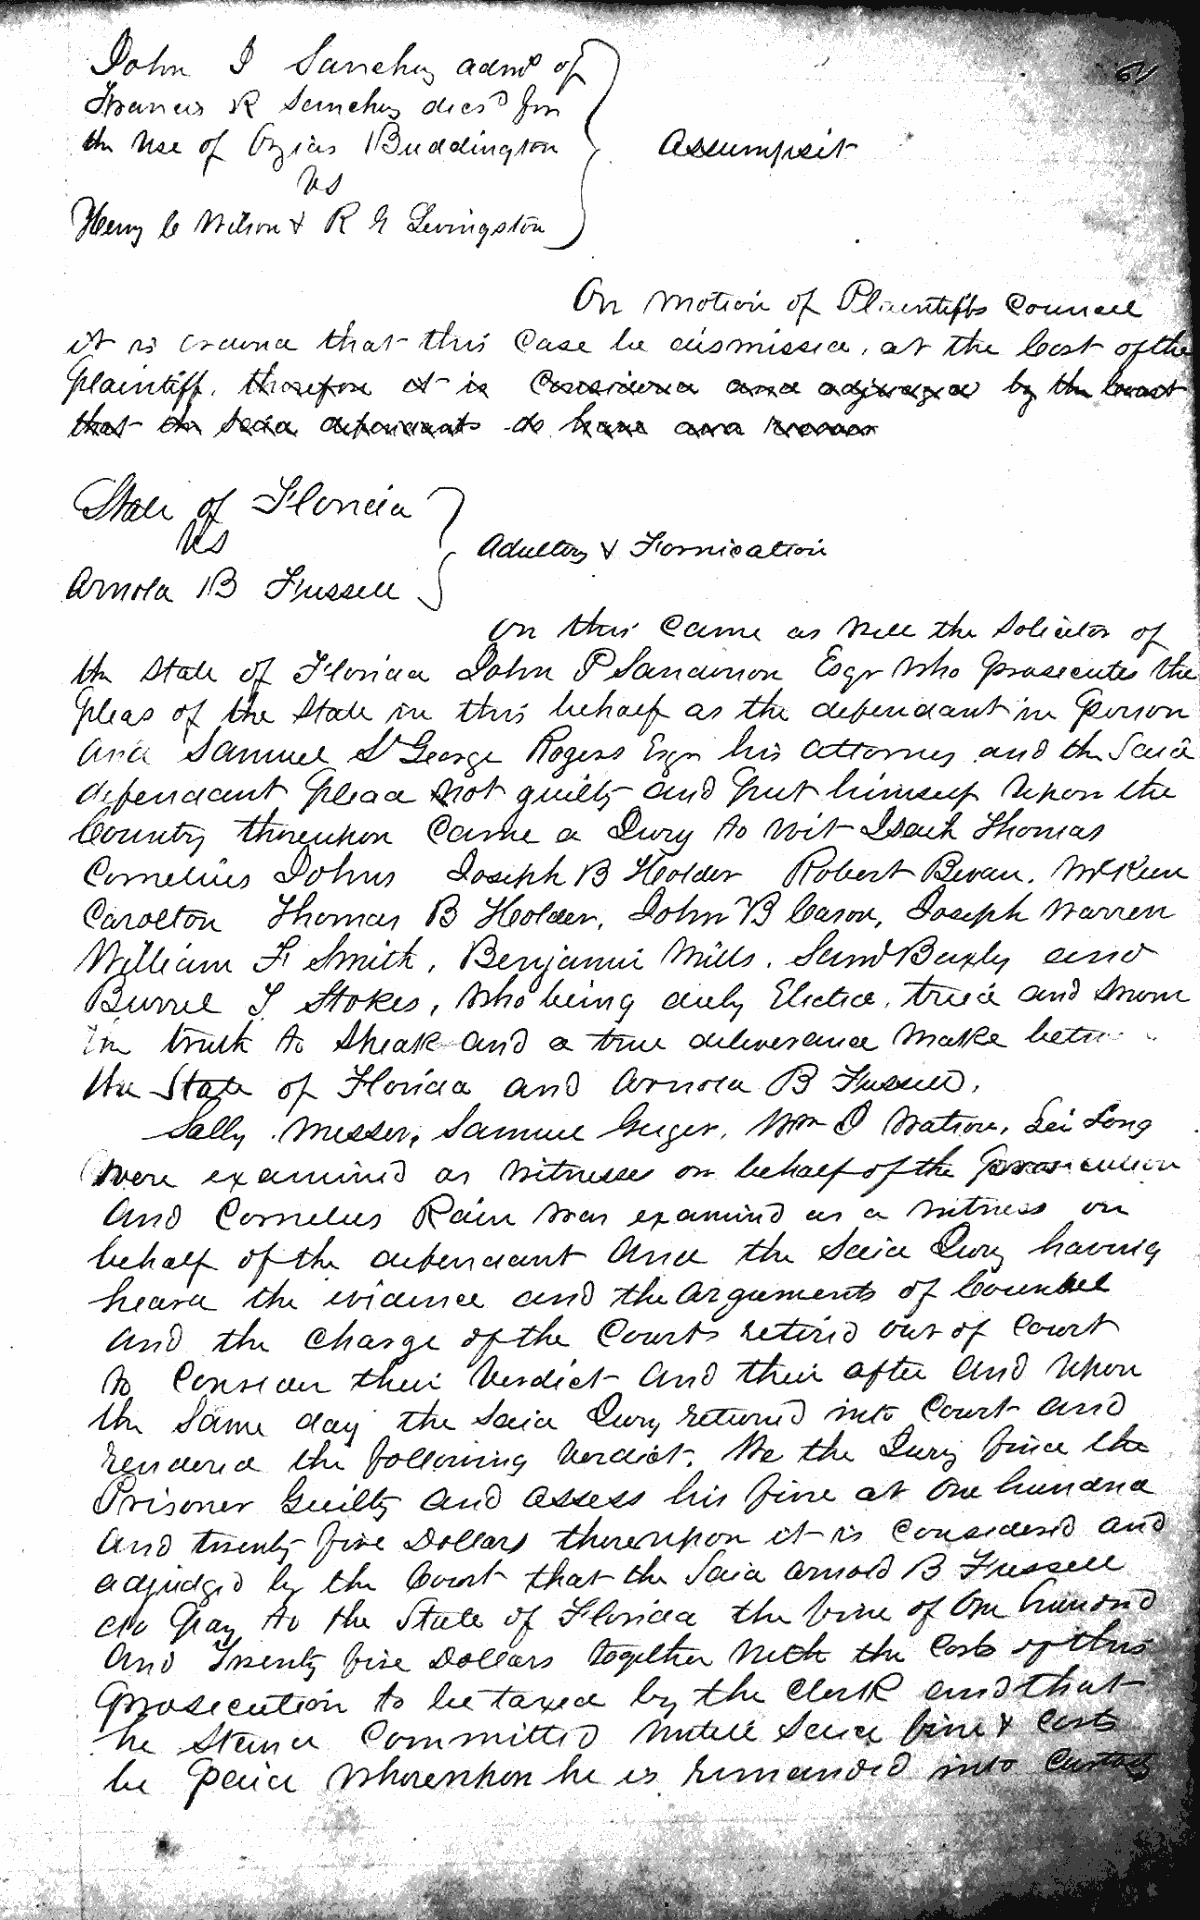 61
John I Sanchez admr of
Francis R Sanchez decsd for
the use of Ozias Buddington
vs
Henry C Wilson & R G Livingston
Assumpsit
On motion of Plaintiffs Councel
it is ordered that this Case be dismissed, at the Cost of the
Plaintiff. therefore it is Considered and adjudged by the Court
that the said defendants do have and recover
State of Florida
vs
Arnold B Fussell
Adultery & Fornication
On this Came as well the Soliciter of
the State of Florida John P Sanderson Esqr who prosecutes the
Pleas of the State in this behalf as the defendant in Person
and Samuel St George Rogers Esqr his attorney and the Said
defendant plead not guilty and put himself upon the
County thereupon Came a Jury to wit Isaih Thomas
Cornelius Johns Joseph B Holder Robert Bevan, McKeen
Carolton Thomas B Holder, John B Cason, Joseph Warren
William F Smith, Benjamin Mills, Saml Baxly and
Burrel T Stokes, who being duly Elected, tried and sworn
the truth to Speak and a true deliverance make betw
the State of Florida and Arnold B Fussell,
Sally Messer, Samuel Geiger, Wm I Watson, Levi Long
were examined as witnesses on behalf of the prosecution
and Cornelius Rain was examined as a witness on
behalf of the defendant and the Said Jury having
heard the evidence and the arguments of Counsel
and the charge of the Courts retired out of Court
to Consider their verdict and then after and upon
the Same day the Said Jury returned into Court and
rendered the following verdict. We the Jury find the
Prisoner Guilty and assess his fine at One hundred
and twenty five Dollars thereupon it is Considered and
adjudged by the Court that the Said Arnold B Fussell
do pay to the State of Florida the fine of One hundred
and Twenty five Dollars together with the Costs of this
prosecution to be taxed by the Clerk and that
he Stand Committed untill Said fine & Costs
be paid whereupon he is remanded into Custody